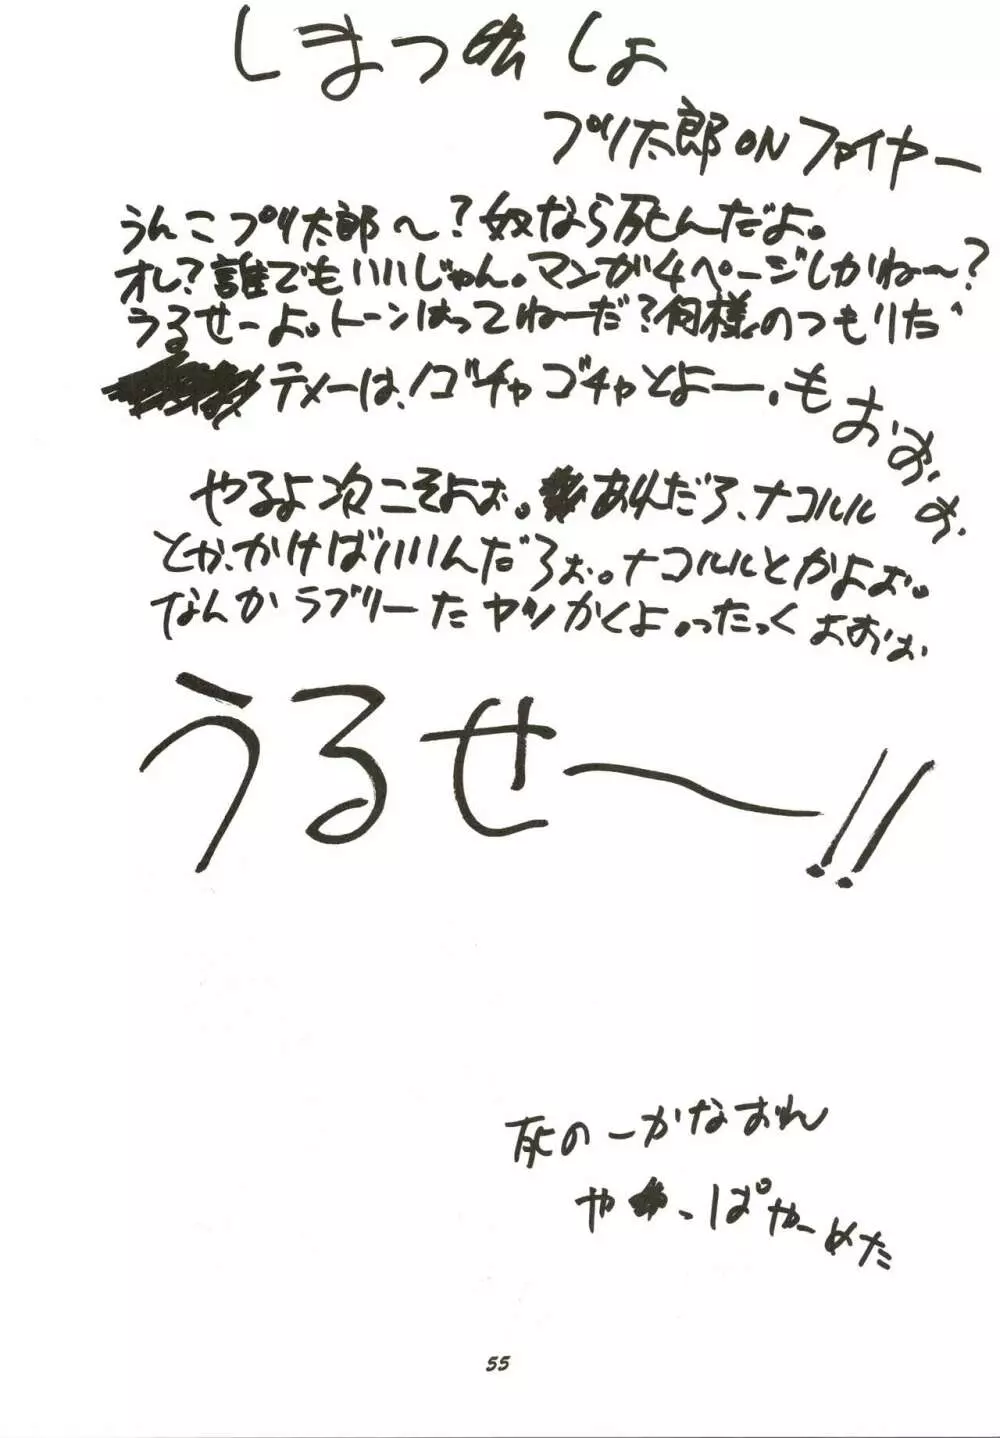 しまつしょ
プリ太郎ONファイヤー
うんこプリ太郎〜?奴なら死んだよ。
オレ?誰でもいいじゃん。マンガ4ページしかね〜?
うるせーよ。トーンはってねーだ?何様のつもりだ
テメーは!ゴチャゴチャとよー。もおおお
やるよ次こそよぉ。あれだろ、ナコルル
とか、かけばいいんだろぉ。ナコルルとかよぉ。
なんかラブリーたヤツかくよ。ったくよおおぉ
うるせ〜!!
死のーかなおれ
やっぱやーめた
55